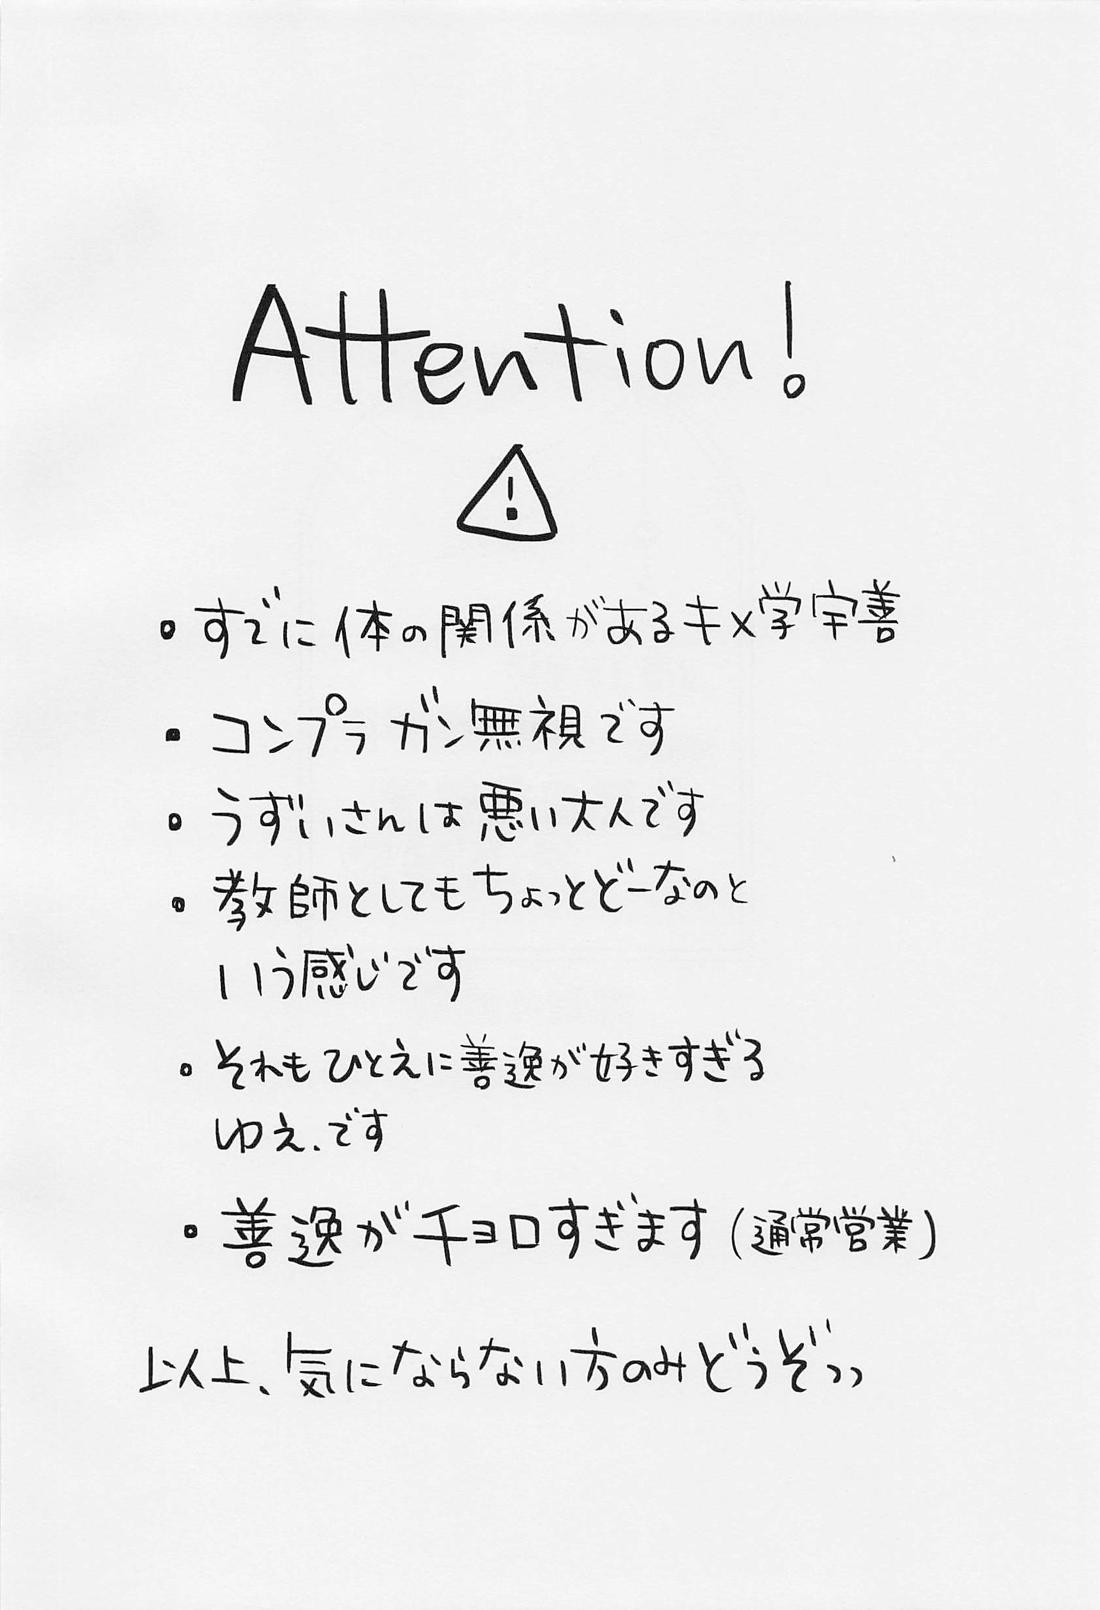 Attention!
!
・すでに体の関係があるキメ学宇善
・コンプラガン無視です
・うずいさんは悪い大人です
・教師としてもちょっとどーなのと
いう感じです
・それもひとえに善逸が好きすぎる
ゆえ、です
・善逸がチョロすぎます(通常営業)
以上、気にならない方のみどうぞっっ